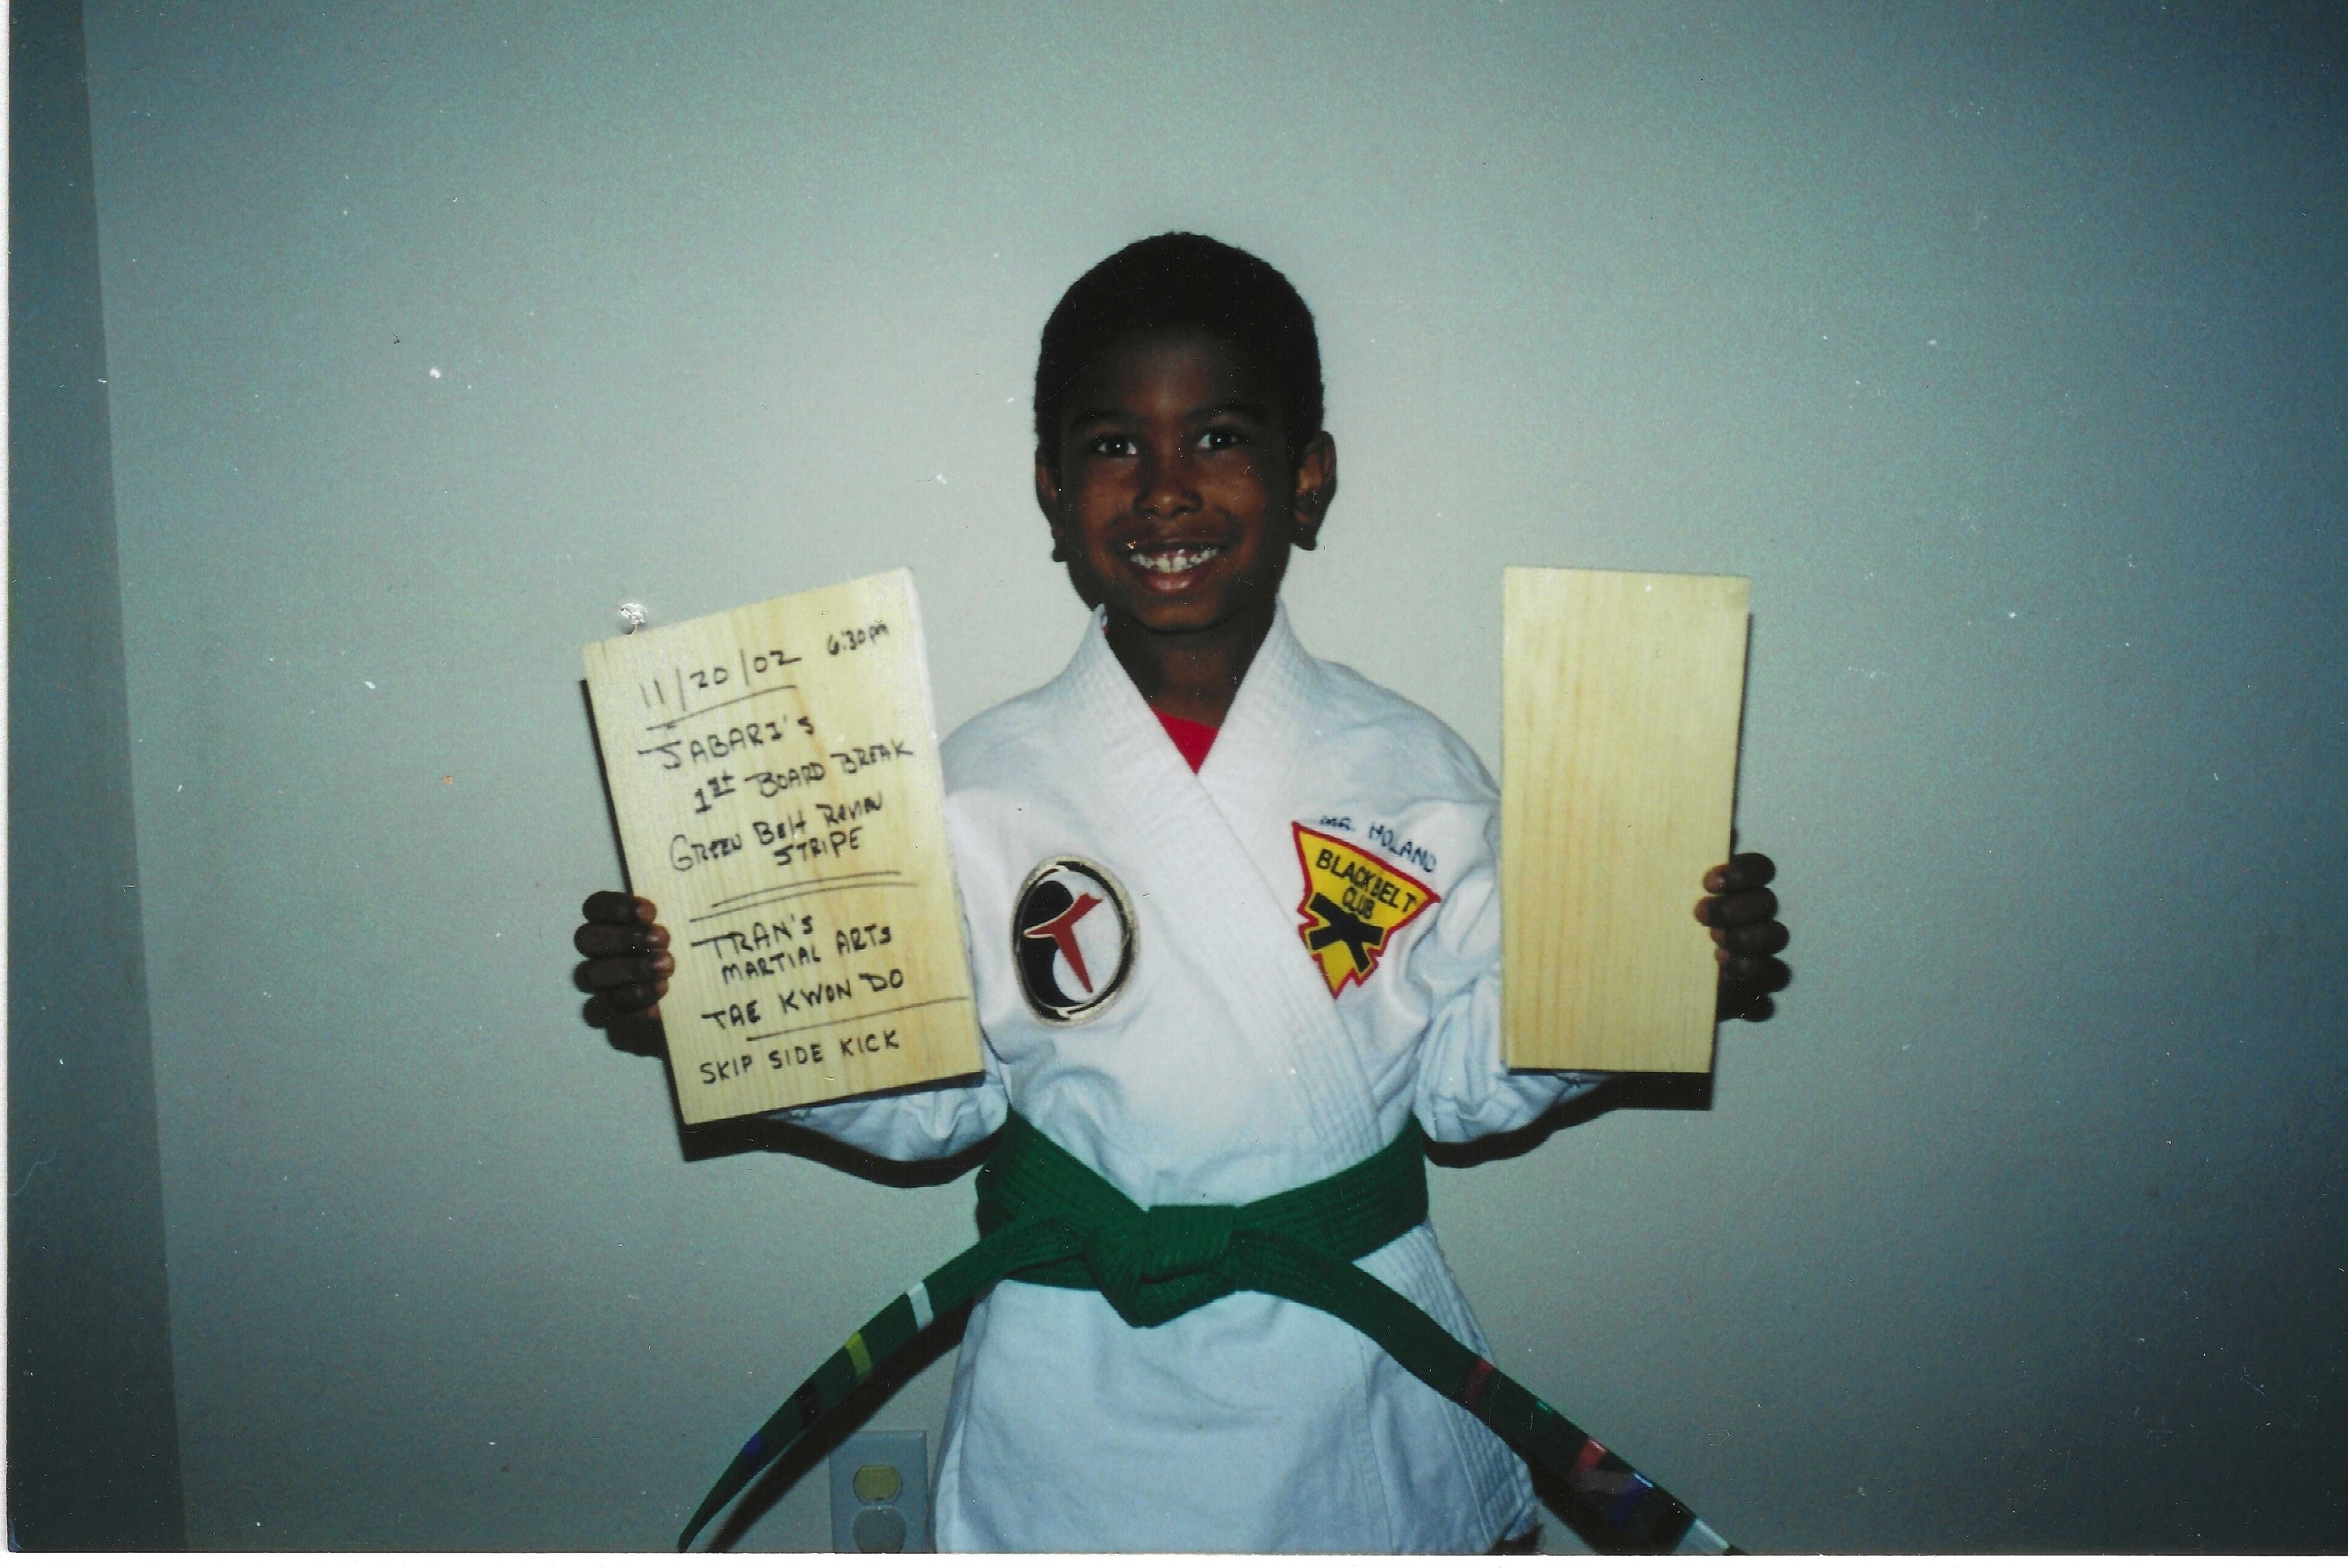 11/20/02 6:30pm
JABARI'S
1st BOARD BREAK
GREEN Belt Review
STRIPE
TRAN'S
MARTIAL ARTS
TAE KWON DO
SKIP SIDE KICK
MR. HOLAND
BLACK BELT
CLUB